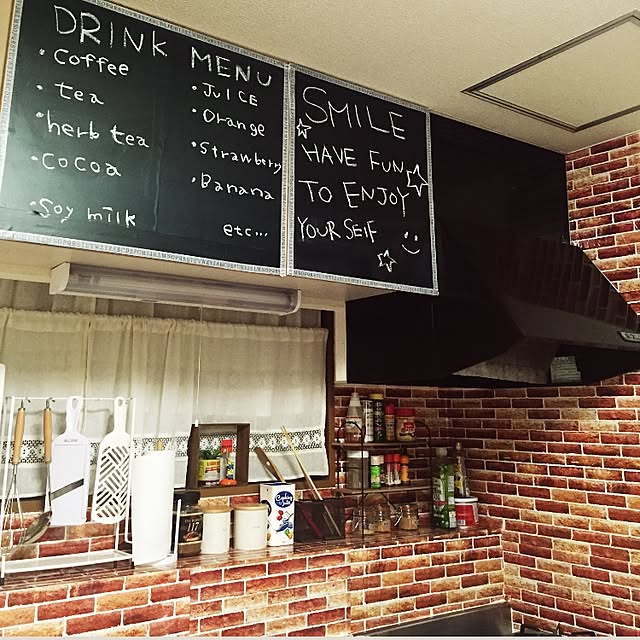 DRINK MENU
• Coffee
• tea
• herb tea
• Cocoa
• Soy milk
• JuICE
• Orange
• Strawberry
• Banana
etc...
SMILE
HAVE FUN
TO ENJOY
YOURSElF